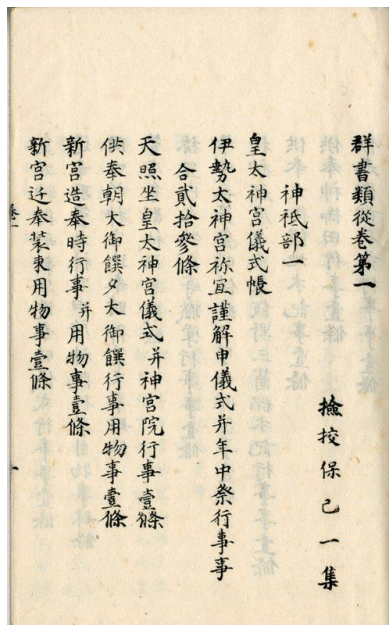 群書類從卷第一
撿挍保己一集
神祇部一
皇太神宮儀式帳
伊勢太神宮祢宜謹解申儀式并年中祭行事事
合貳拾參條
天照坐皇太神宮儀式并神宮院行事壹條
供奉朝大御饌夕大御饌行事用物事壹條
新宮造奉時行事并用物事壹條
新宮迁奉裝束用物事壹條